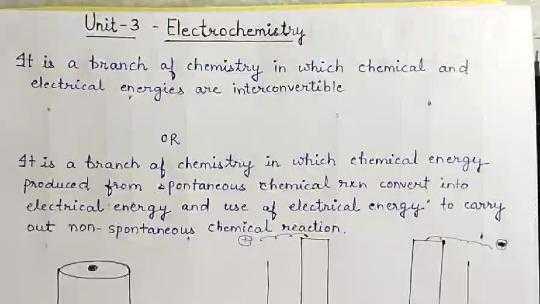 Unit-3 - Electrochemistry
It is a branch of chemistry in which chemical and
electrical energies are interconvertible
OR
It is a branch of chemistry in which chemical energy
produced from spontaneous chemical rxn convert into
electrical energy and use of electrical energy to carry
out non-spontaneous chemical reaction.